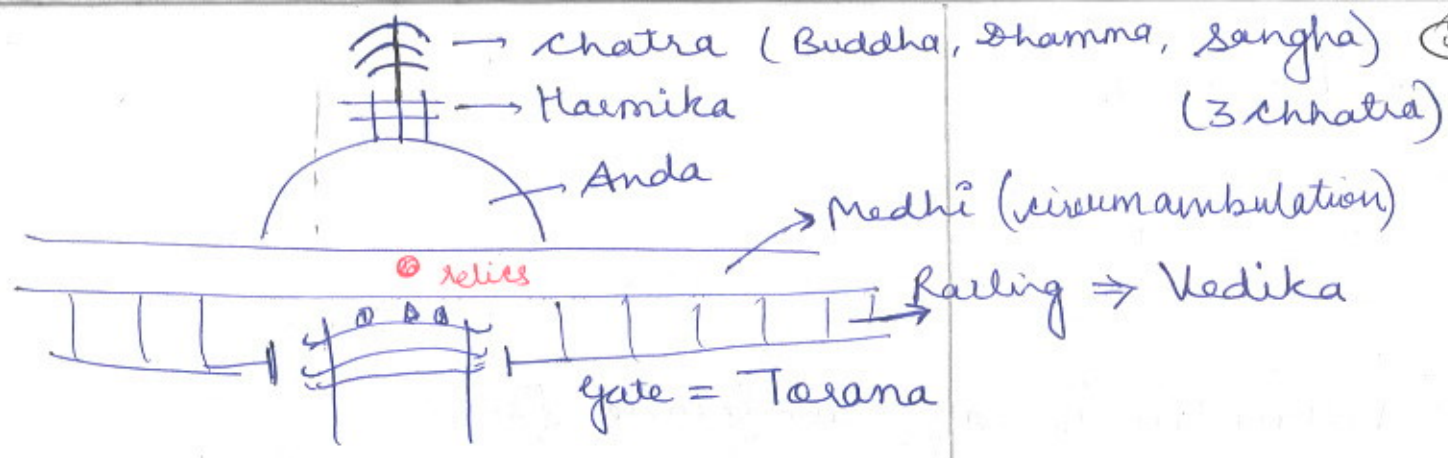 chatra (Buddha, Dhamma, Sangha)
(3 chhatra)
Harmika
Anda
Medhi (circumambulation)
relics
Railing ⇒ Vedika
Gate = Torana